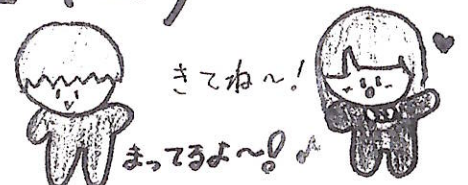 きてね〜!
まってるよ〜!♪